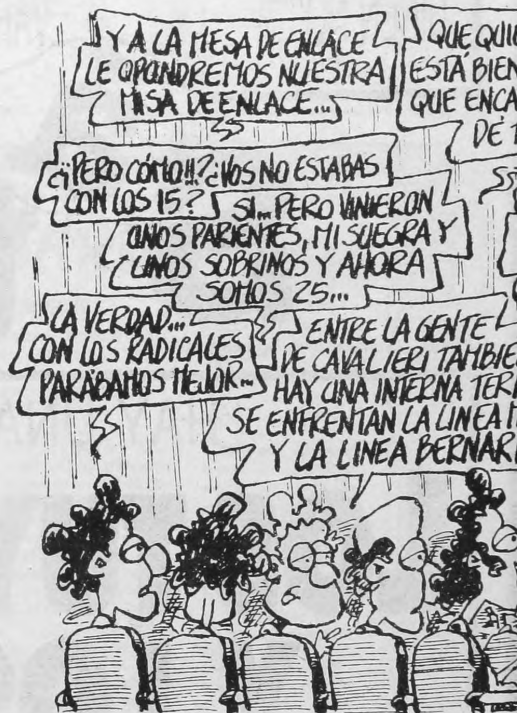 Y A LA MESA DE ENLACE
LE OPONDREMOS NUESTRA
MISA DE ENLACE...
QUE QUI
ESTÁ BIEN
QUE ENCA
DE
¿¡PERO CÓMO!!? ¿VOS NO ESTABAS
CON LOS 15?
SI... PERO VINIERON
UNOS PARIENTES, MI SUEGRA Y
UNOS SOBRINOS Y AHORA
SOMOS 25...
LA VERDAD...
CON LOS RADICALES
PARÁBAMOS MEJOR...
ENTRE LA GENTE
DE CAVALIERI TAMBIE
HAY UNA INTERNA TER
SE ENFRENTAN LA LINEA
Y LA LINEA BERNAR